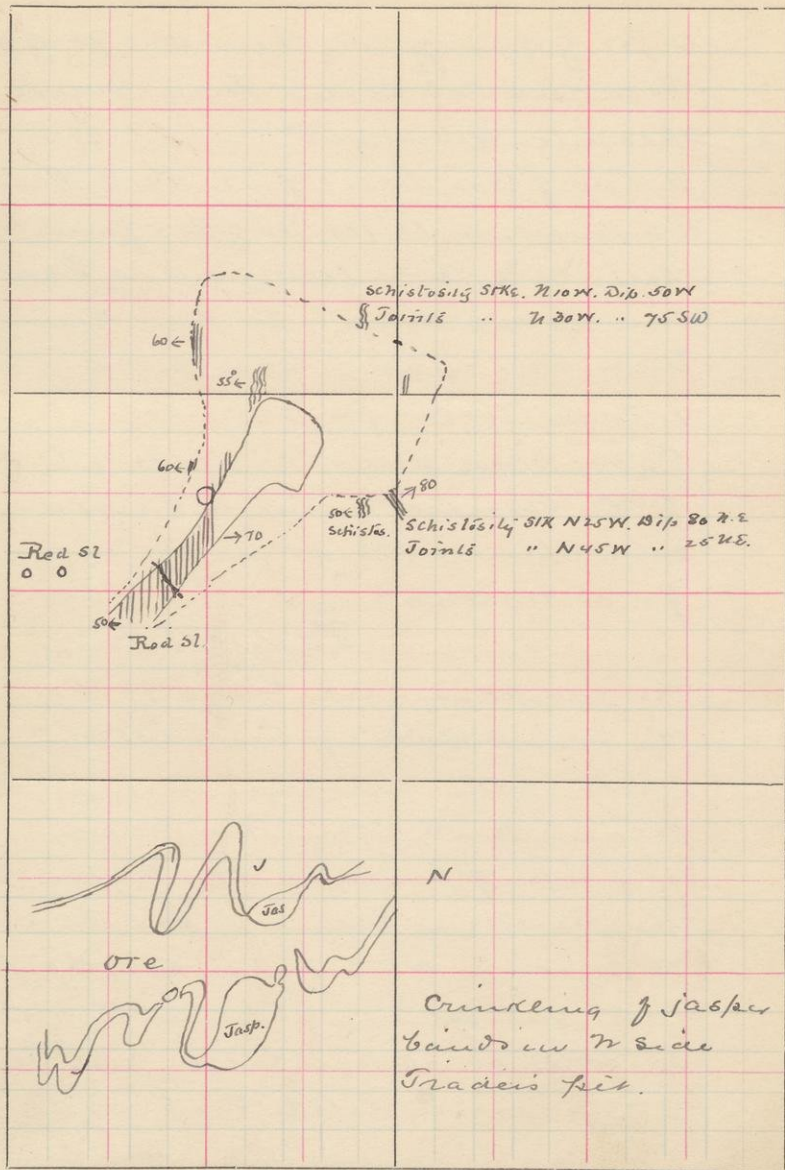 Schistosity Stke. N10W. Dip. 50W
Joints " N30W. " 75 SW
60←
55°←
60←
→80
50←
Schistos.
Schistosity Stk N25W. Dip 80 N.E
Joints " N45W " 25 N.E.
→70
Red Sl
50←
Red Sl.
J
N
Jas
ore
Jasp.
Crinkling of jasper
bands in N side
Traders pit.